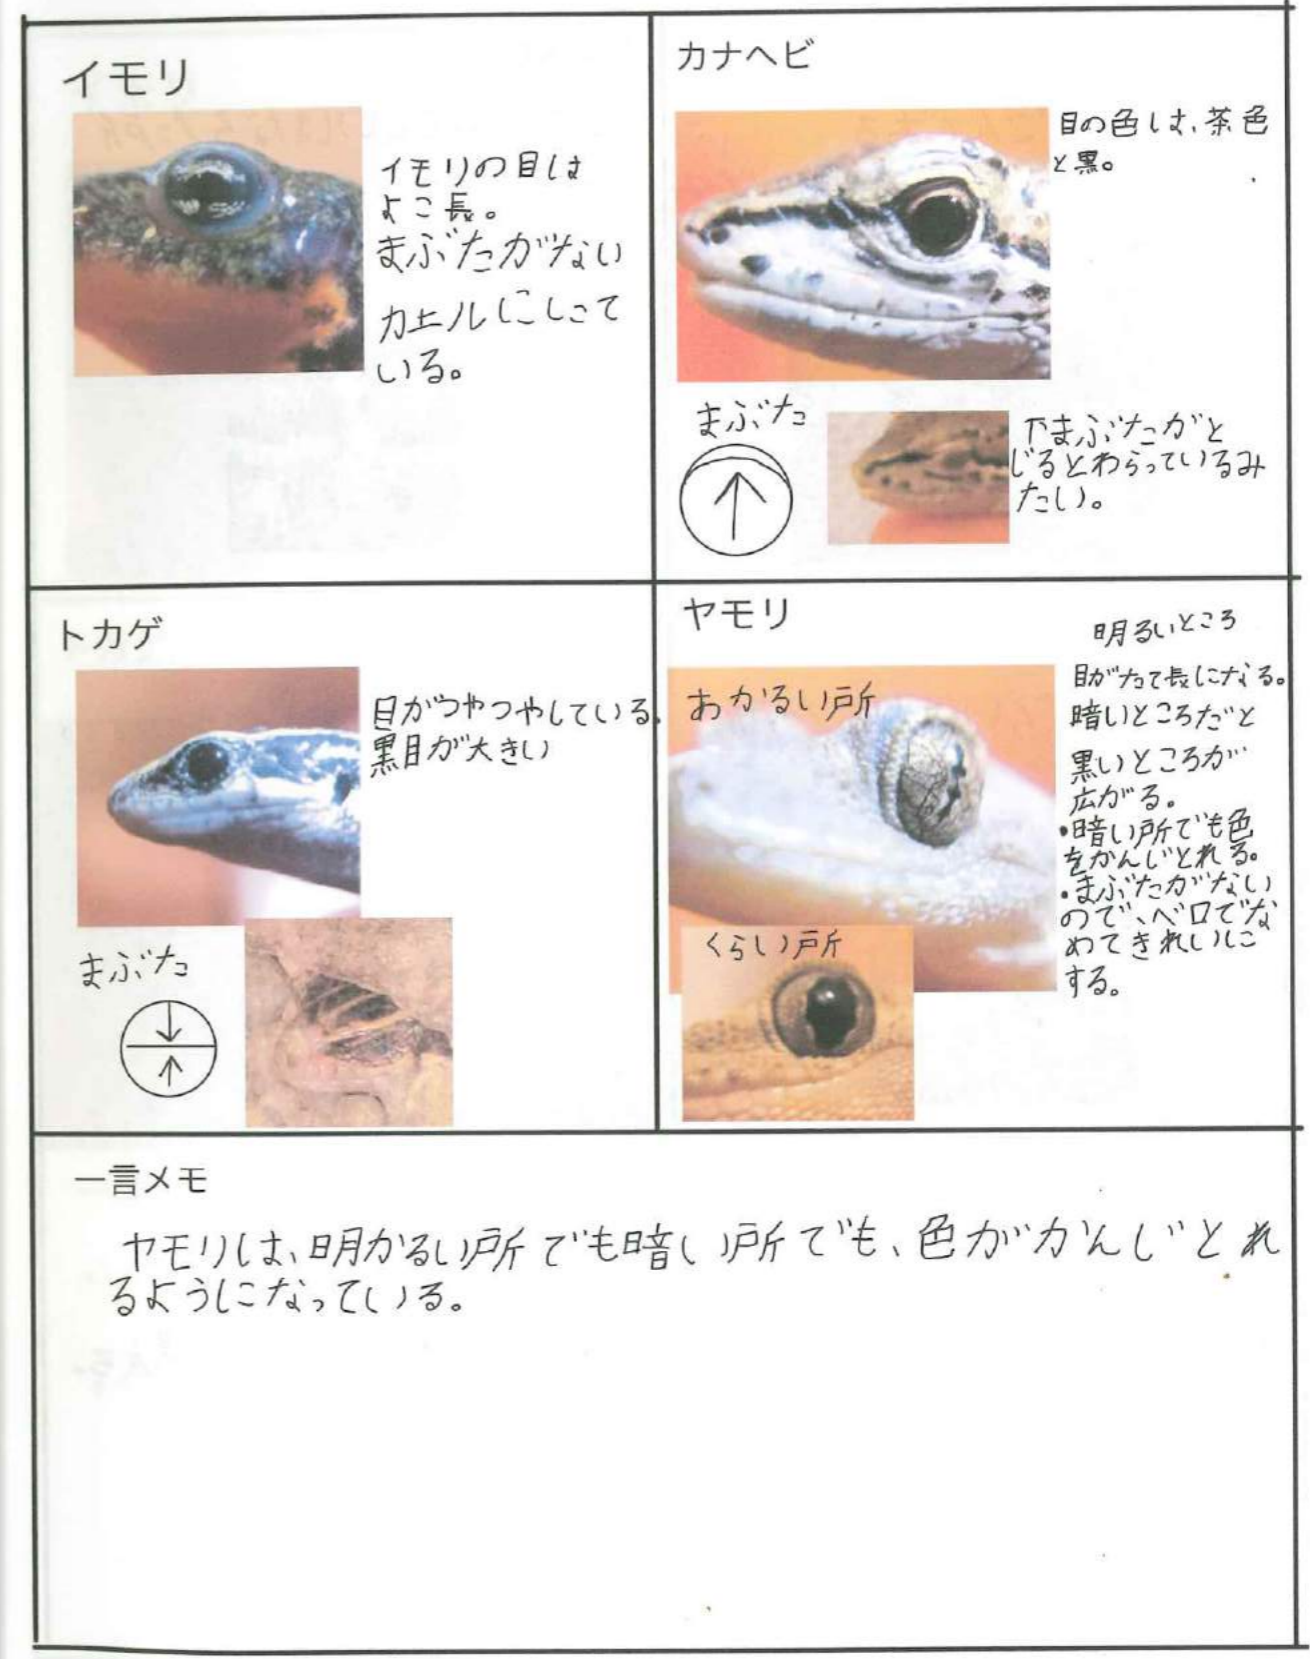 イモリ
イモリの目は
よこ長。
まぶたがない
カエルににて
いる。
カナヘビ
目の色は、茶色
と黒。
まぶた
下まぶたがと
じるとわらっているみ
たい。
トカゲ
目がつやつやしている。
黒目が大きい
まぶた
ヤモリ
あかるい所
くらい所
明るいところ
目がたて長になる。
暗いところだと
黒いところが
広がる。
・暗い所でも色
をかんじとれる。
・まぶたがない
ので、ベロでな
めてきれいに
する。
一言メモ
ヤモリは、明かるい所でも暗い所でも、色がかんじとれ
るようになっている。